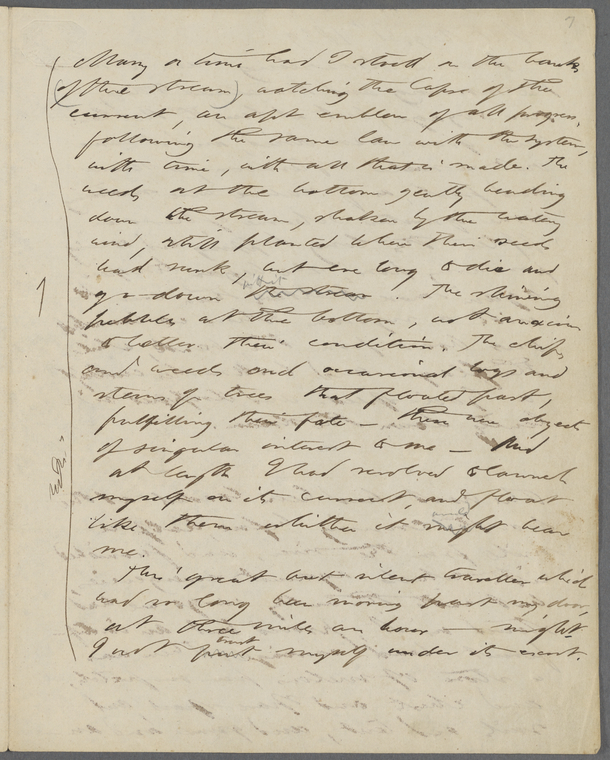 7
Many a time had I stood on the banks
(of the stream) watching the lapse of the
current, an apt emblem of all progress,
following the same law with the system,
with time, with all that is made. The
weeds at the bottom gently bending
down the stream, shaken by the watery
wind, still planted where their seeds
had sunk, but ere long to die and
go down the stream. The shining
pebbles at the bottom, not anxious
to better their condition. The chips
and weeds and occasional logs and
stems of trees that floated past,
fulfilling their fate — these were objects
of singular interest to me — And
at length I had resolved to launch
myself on its current, and float
like them whither it might bear
me.
This great but silent traveller which
had so long been moving past my door,
at three miles an hour — might
I not trust put myself under its escort.